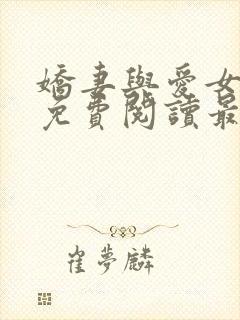 嬌妻與愛女
免費閱讀最
崔夢麟